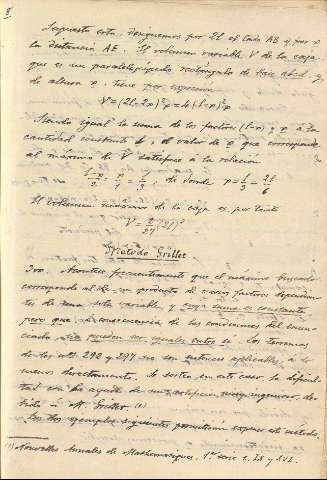 Supuesto esto, designemos por 2l el lado AB y por p
la distancia AE. El volumen variable V de la caja
que es un paralelepípedo rectángulo de base abcd y
de altura p, tiene por expresión
V=(2l-2p)²p=4(l-p)²p
Siendo igual la suma de los factores (l-p) y p a la
cantidad constante l, el valor de p que corresponde
al máximo de V satisface a la relación
l-p/2 = p/1 = l/3, de donde p = l/3 = 2l/6
El volumen máximo de la caja es por tanto
V = 2/27 (2l)³
Método Grillet
300. Acontece frecuentemente que el máximo buscado
corresponde al de un producto de varios factores dependien-
tes de una sola variable, y cuya suma es constante
pero que a consecuencia de las condiciones del enun-
ciado no pueden ser iguales entre sí. Los teoremas
de los nos 298 y 297 no son entonces aplicables, a lo
menos directamente. Se sortea en este caso la dificul-
tad con la ayuda de un artificio muy ingenioso, de-
bido a M. Grillet. (1)
Los dos ejemplos siguientes permitirán exponer este método.
(1) Nouvelles Annales de Mathématiques, 1re serie t.